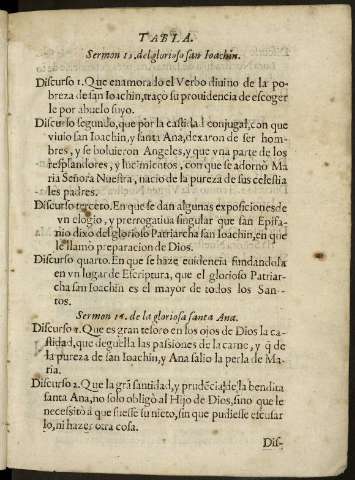 TABLA.
Sermon 13. del glorioso san Ioachin.
Discurso 1. Que enamorado el Verbo diuino de la po-
breza de san Ioachin, traço su prouidencia de escoger
le por abuelo suyo.
Discurso segundo, que por la castidad conjugal, con que
viuio san Ioachin, y santa Ana, dexaron de ser hom-
bres, y se boluieron Angeles, y que vna parte de los
resplandores, y lucimientos, con que se adornò Ma
ria Señora Nuestra, nacio de la pureza de sus celestia
les padres.
Discurso tercero. En que se dan algunas exposiciones de
vn elogio, y prerrogatiua singular que san Epifa-
nio dixo del glorioso Patriarcha san Ioachin, en que
le llamò preparacion de Dios.
Discurso quarto. En que se haze euidencia fundandola
en vn lugar de Escriptura, que el glorioso Patriar-
cha san Ioachin es el mayor de todos los San-
tos.
Sermon 14. de la gloriosa santa Ana.
Discurso 1. Que es gran tesoro en los ojos de Dios la ca-
stidad, que deguella las passiones de la carne, y q̃ de
la pureza de san Ioachin, y Ana salio la perla de Ma-
ria.
Discurso 2. Que la grã santidad, y prudẽcia de la bendita
santa Ana, no solo obligò al Hijo de Dios, sino que le
necessitò à que fuesse su nieto, sin que pudiesse escusar
lo, ni hazer otra cosa.
Dis-